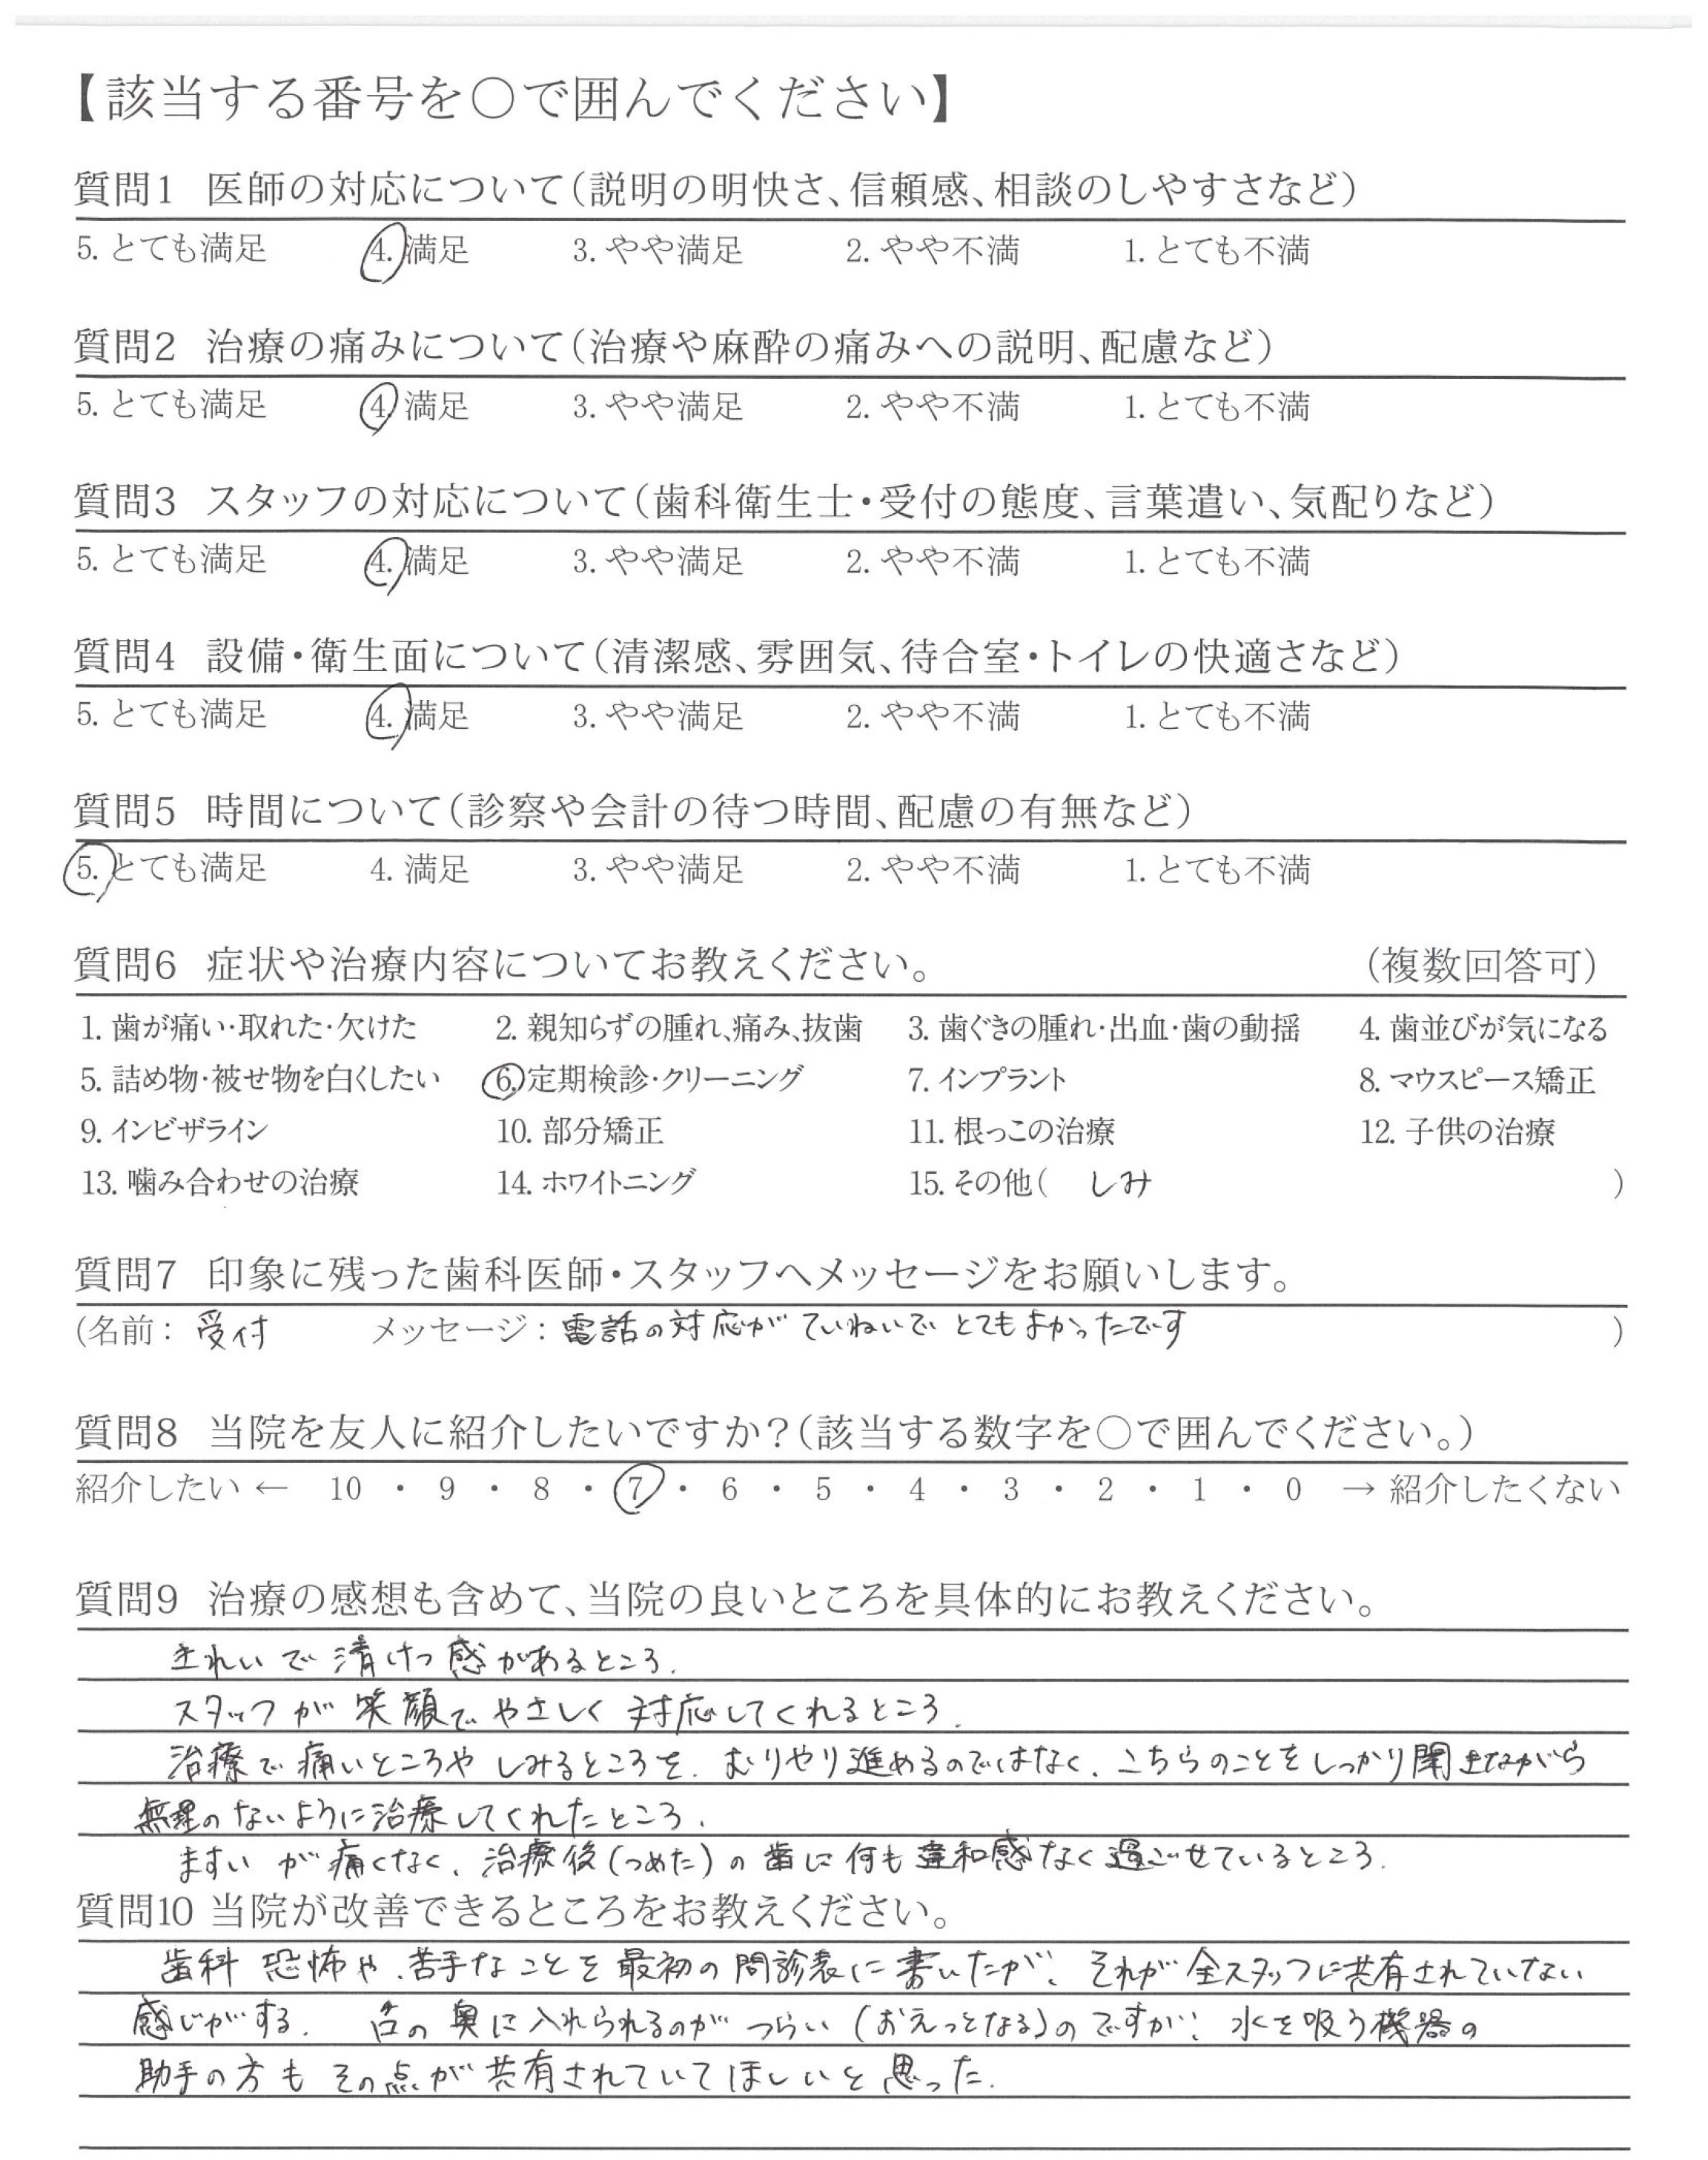 【該当する番号を○で囲んでください】
質問1 医師の対応について(説明の明快さ、信頼感、相談のしやすさなど)
5. とても満足 4. 満足 3. やや満足 2. やや不満 1. とても不満
質問2 治療の痛みについて(治療や麻酔の痛みへの説明、配慮など)
5. とても満足 4. 満足 3. やや満足 2. やや不満 1. とても不満
質問3 スタッフの対応について(歯科衛生士・受付の態度、言葉遣い、気配りなど)
5. とても満足 4. 満足 3. やや満足 2. やや不満 1. とても不満
質問4 設備・衛生面について(清潔感、雰囲気、待合室・トイレの快適さなど)
5. とても満足 4. 満足 3. やや満足 2. やや不満 1. とても不満
質問5 時間について(診察や会計の待つ時間、配慮の有無など)
5. とても満足 4. 満足 3. やや満足 2. やや不満 1. とても不満
質問6 症状や治療内容についてお教えください。 (複数回答可)
1. 歯が痛い・取れた・欠けた 2. 親知らずの腫れ、痛み、抜歯 3. 歯ぐきの腫れ・出血・歯の動揺 4. 歯並びが気になる
5. 詰め物・被せ物を白くしたい 6. 定期検診・クリーニング 7. インプラント 8. マウスピース矯正
9. インビザライン 10. 部分矯正 11. 根っこの治療 12. 子供の治療
13. 噛み合わせの治療 14. ホワイトニング 15. その他( しみ )
質問7 印象に残った歯科医師・スタッフへメッセージをお願いします。
(名前: 受付 メッセージ: 電話の対応がていねいでとてもよかったです )
質問8 当院を友人に紹介したいですか?(該当する数字を○で囲んでください。)
紹介したい ← 10 ・ 9 ・ 8 ・ 7 ・ 6 ・ 5 ・ 4 ・ 3 ・ 2 ・ 1 ・ 0 → 紹介したくない
質問9 治療の感想も含めて、当院の良いところを具体的にお教えください。
きれいで清けつ感があるところ.
スタッフが笑顔でやさしく対応してくれるところ.
治療で痛いところやしみるところを、むりやり進めるのではなく、こちらのことをしっかり聞きながら
無理のないように治療してくれたところ.
ますいが痛くなく、治療後(つめた)の歯に何も違和感なく過ごせているところ.
質問10 当院が改善できるところをお教えください。
歯科恐怖や、苦手なことを最初の問診表に書いたが、それが全スタッフに共有されていない
感じがする. 舌の奥に入れられるのがつらい(おえっとなる)のですが、水を吸う機器の
助手の方もその点が共有されていてほしいと思った.